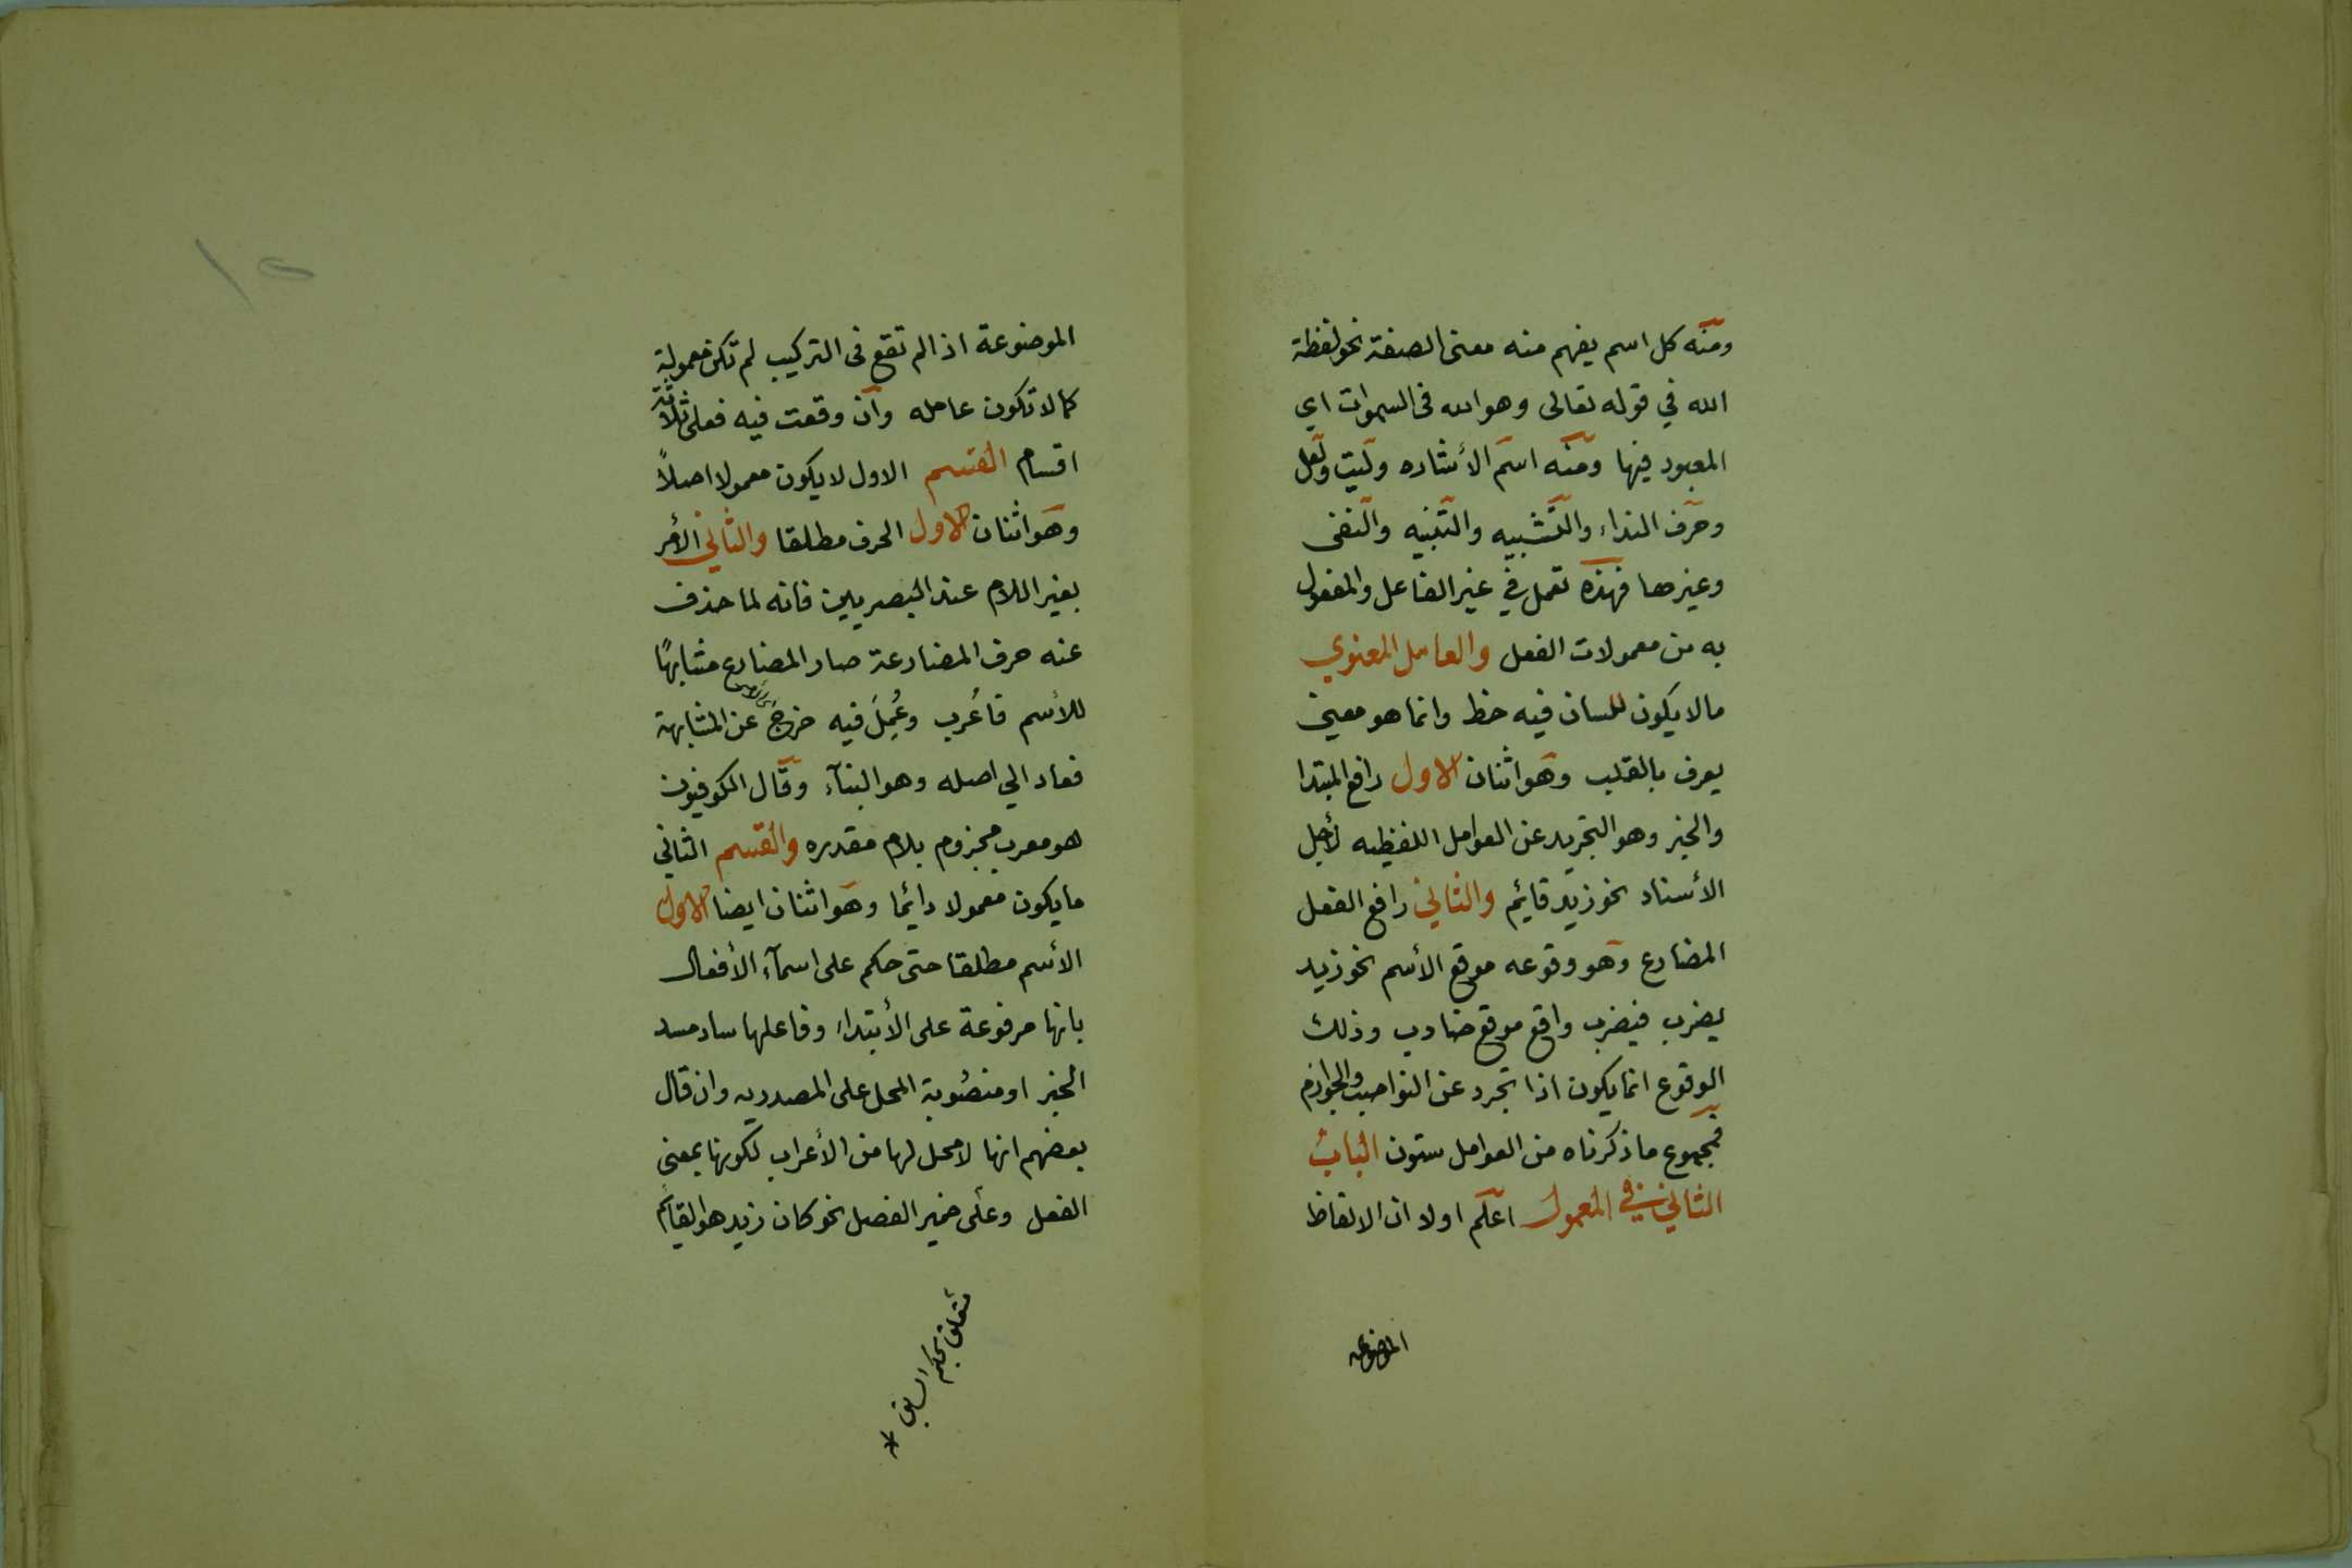 ومنه كل اسم يفهم منه معنى الصفة نحو لفظة
الله في قوله تعالى وهو الله فى السموات اي
المعبود فيها ومنه اسم الأشاره وليت ولعل
وحرف النداء والتشبيه والتنبيه والنفى
وغيرها فهذه تعمل في غير الفاعل والمفعول
به من معمولات الفعل والعامل المعنوي
مالا يكون للسان فيه حظ وانما هو معنى
يعرف بالقلب وهو اثنان الاول رافع المبتدا
والخبر وهو التجريد عن العوامل اللفظيه لأجل
الأسناد نحو زيد قائم والثاني رافع الفعل
المضارع وهو وقوعه موقع الأسم نحو زيد
يضرب فيضرب واقع موقع ضارب وذلك
الوقوع انما يكون اذا تجرد عن النواصب والجوازم
فمجموع ما ذكرناه من العوامل ستون الباب
الثاني في المعمول اعلم اولا ان الالفاظ
الموضوعه
١٥
الموضوعة اذا لم تقع فى التركيب لم تكن معمولة
كما لا تكون عامله وان وقعت فيه فعلى ثلاثة
اقسام القسم الاول لا يكون معمولا اصلاً
وهو اثنان الاول الحرف مطلقا والثاني الأمر
بغير اللام عند البصريين فانه لما حذف
عنه حرف المضارعة صار المضارع مشابهًا
للأسم فاُعرب وعُمِلَ فيه خرجَ عن المشابهة
فعاد الي اصله وهو البنآء وقال الكوفيون
هو معرب مجزوم بلام مقدره والقسم الثاني
ما يكون معمولا دائما وهو اثنان ايضا الاول
الأسم مطلقا حتى حكم على اسمآء الأفعال
بانها مرفوعة على الأبتداء وفاعلها ساد مسد
الخبر او منصوبة المحل على المصدريه وان قال
بعضهم انها لا محل لها من الأعراب لكونها بمعنى
الفعل وعلى ضمير الفصل نحو كان زيد هو القائم
متعلق بحكم السابق *